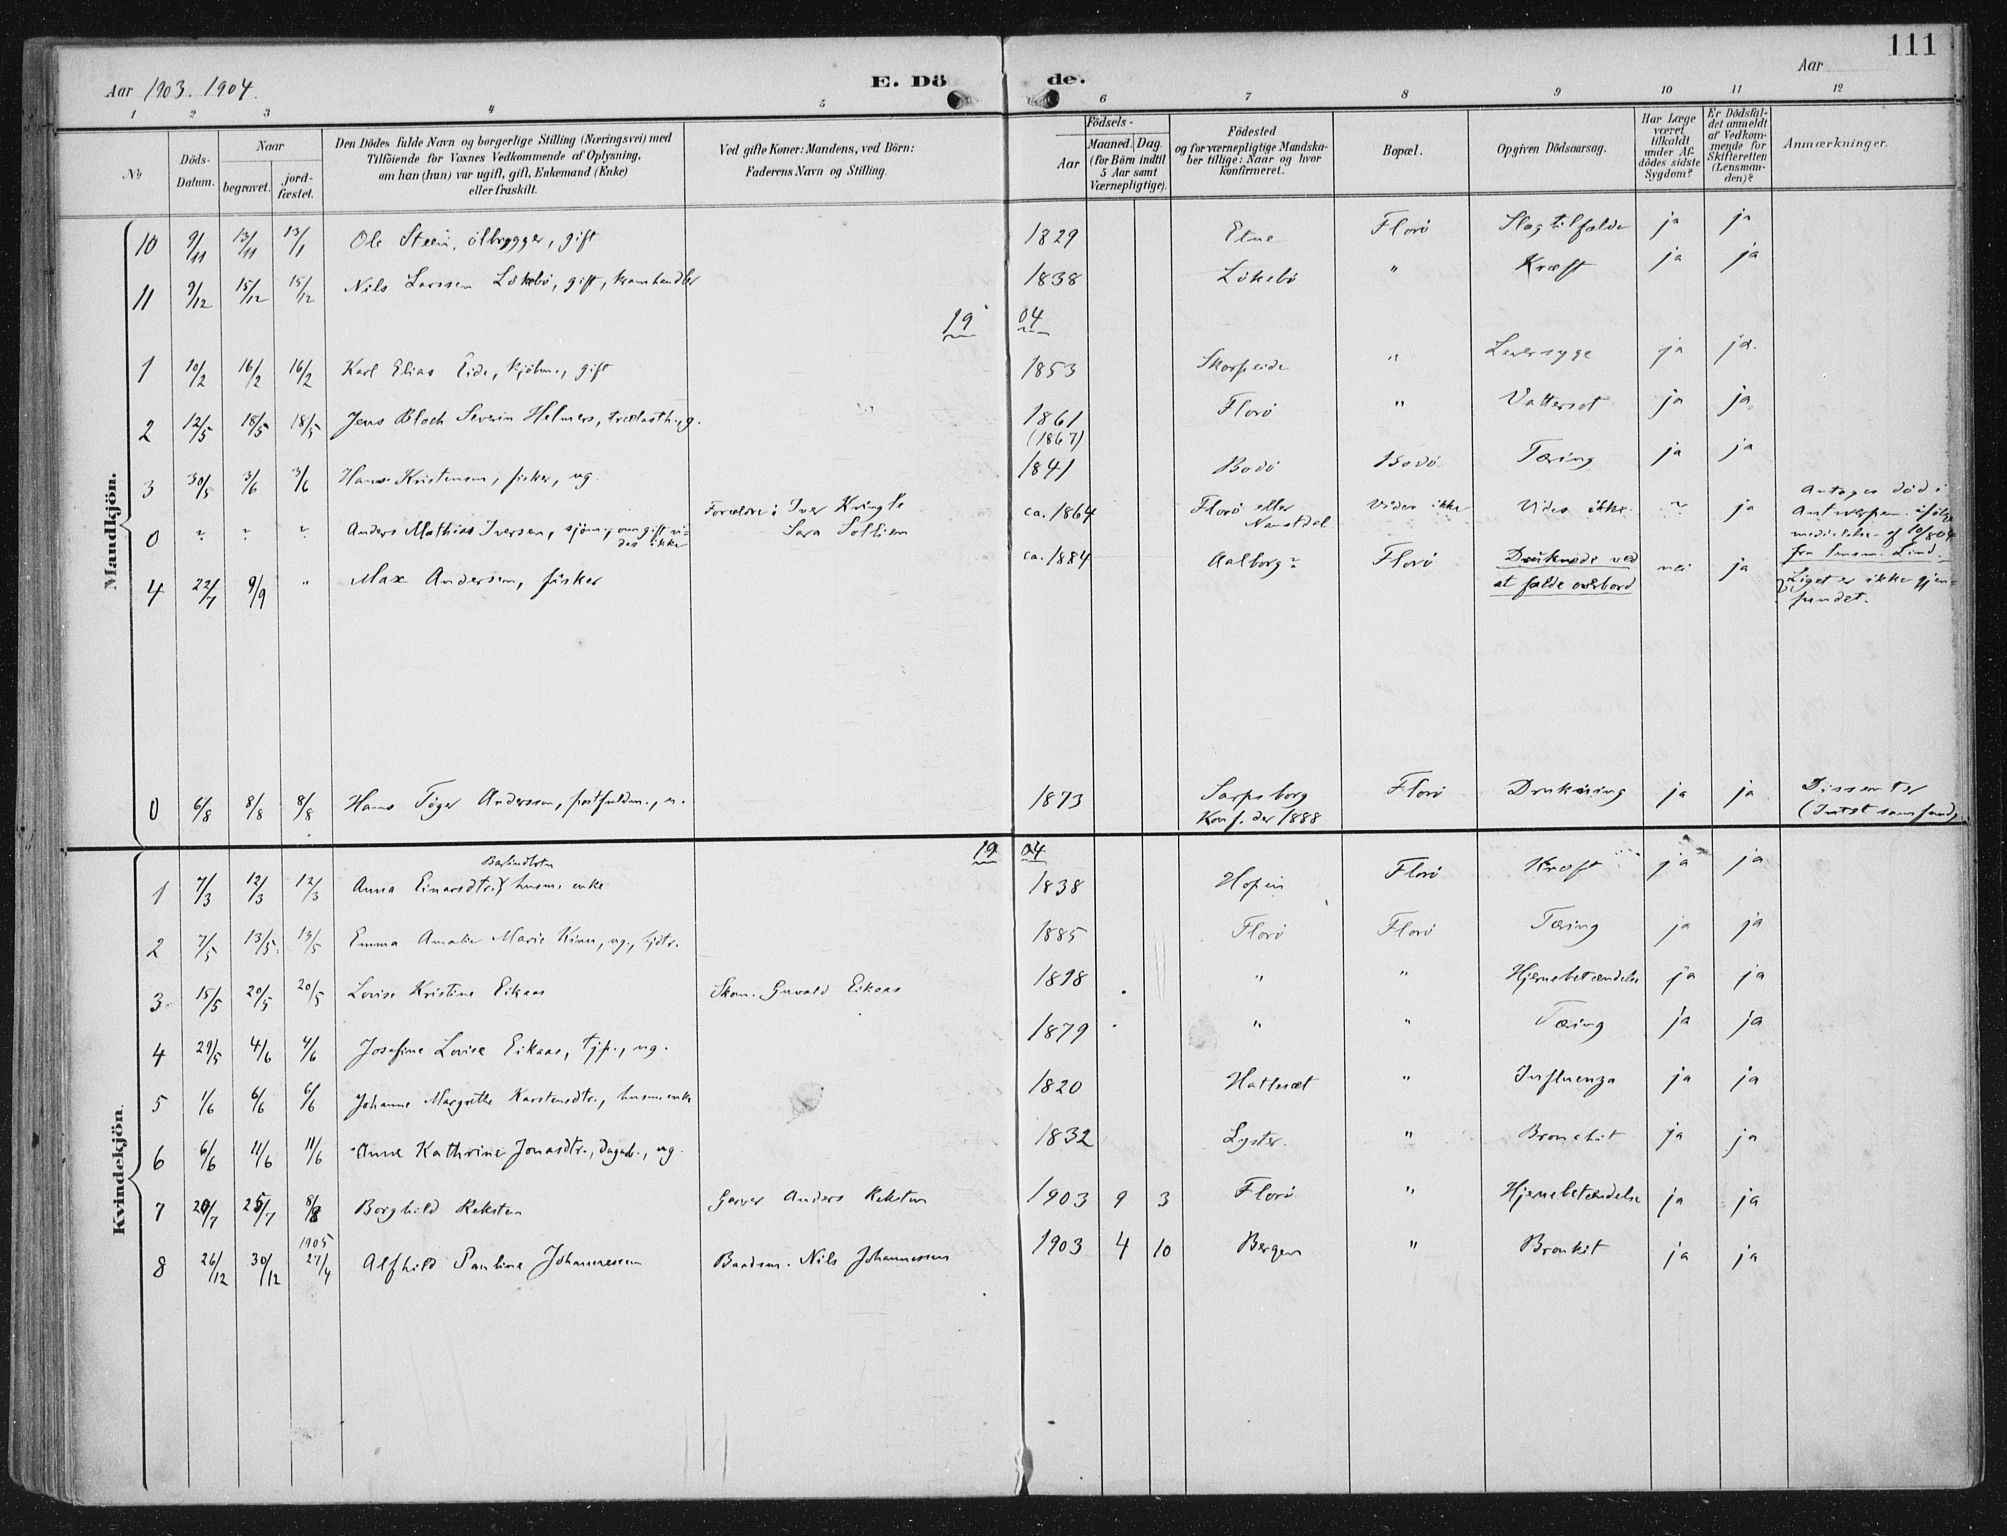 Aar 1903. 1904.
E. Dö de.
Aar
111
1 2 3 4 5 6 7 8 9 10 11 12
No
Döds-Datum.
Naar
begravet.
jord-fæstet.
Den Dödes fulde Navn og borgerlige Stilling (Næringsvei) med
Tilföiende for Voxnes Vedkommende af Oplysning,
om han (hun) var ugift, gift, Enkemand (Enke)
eller fraskilt.
Ved gifte Koner: Mandens, ved Börn:
Faderens Navn og Stilling.
Födsels-
Aar
Maaned. Dag.
(for Börn indtil
5 Aar samt
Værnepligtige).
Födested
og for værnepligtige Mandska-
ber tillige: Naar og hvor
konfirmeret.
Bopæl.
Opgiven Dödsaarsag.
Har Læge
været
tilkaldt
under Af-
dödes sidste
Sygdom?
Er Dödsfal-
det anmeldt
af Vedkom-
mende for
Skifteretten
(Lensman-
den)?
Anmærkninger.
Mandkjön.
10 9/11 13/11 13/1 Ole Steen, ölbrygger, gift 1829 Etne Florö Slagtilfælde ja ja
11 9/12 15/12 15/12 Nils Larssen Lökebö, gift, kramhandler 1838 Lökebö " Kræft ja ja
19 04
1 10/2 16/2 16/2 Karl Elias Eide, kjöbm., gift 1853 Skorpeide " Leversyge ja ja.
2 12/5 18/5 18/5 Jens Bloch Severin Helmers, trælasth., g. 1861 (1867) Florö " Vattersot ja ja
3 30/5 3/6 3/6 Hans Kristensen, fisker, ug. 1841 Bodö Bodö Tæring ja ja
0 ? ? ? Anders Mathias Iversen, sjöm., om gift vi-
des ikke
Forældre: Iver Kringle
Sara Sollien
ca. 1864 Florö eller
Namsdal
Vides ikke Vides ikke. ? ja
Antages död i
Antwerpen ifölge
meddelelse af 10/8 04
fra lensm. Lind.
4 22/7 9/9 " Max Andersen, fisker ca. 1884 Aalborg? Florö Druknede ved
at falde overbord
nei ja
Liget er ikke gjen-
fundet.
0 6/8 8/8 8/8 Hans Töger Anderssen, postfuldm., u. 1873 Sarpsborg
Konf. der 1888
Florö Drukning ja ja Dissenter
Kvindekjön.
19 04
1 7/3 12/3 12/3 Anna Einarsdtr. husm. enke 1838 Hopen Florö Kræft ja ja
2 7/5 13/5 13/5 Emma Amalie Marie Kinn, ug., 1885 Florö Florö Tæring ja ja
3 15/5 20/5 20/5 Lovise Kristine Eikaas Skom. Guvald Eikaas 1898 " " Hjernebetændelse ja ja
4 29/5 4/6 4/6 Josefine Lovise Eikaas, tjp., ug. 1879 " " Tæring ja ja
5 1/6 6/6 6/6 Johanne Margrethe Karstensdtr., husm. enke 1820 Hatleset " Influenza ja ja
6 6/6 11/6 11/6 Anne Kathrine Jonasdtr., dagarb., ug. 1832 Lyster. " Bronchit ja ja
7 20/7 25/7 8/8 Borghild Reksten Garver Anders Reksten 1903 9 3 Florö " Hjernebetændelse ja ja
8 26/12 30/12 1905 27/4 Alfhild Pauline Johannessen Baadsm. Nils Johannessen 1903 4 10 Bergen " Bronkit ja ja